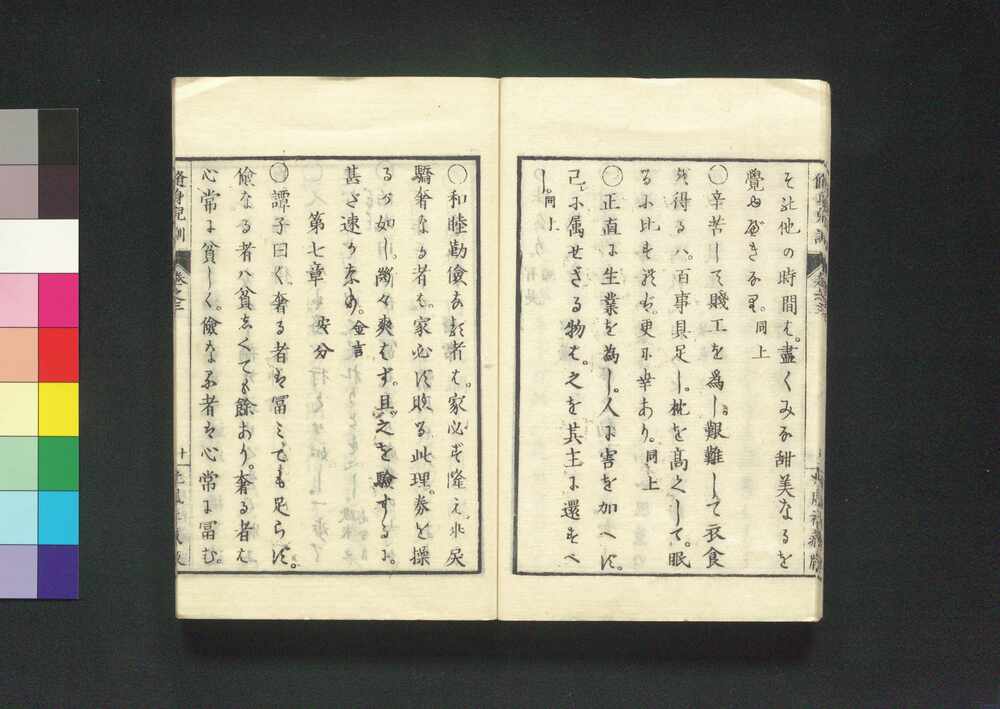 その他の時間は。盡くみな甜美なるを
覺ゆべきなり。同上
〇辛苦して賤工を爲し。艱難して衣食
を得るハ。百事具足し。枕を高くして。眠
るに比すれば。更に幸あり。同上
〇正直に生業を為し。人に害を加へず。
己に属せざる物は。之を其主に還すべ
し。同上
〇和睦勤儉なる者は。家必ず隆え。非戻
驕奢なる者は。家必ず敗る此理券を操
るが如し。断々爽はず。且之を驗するに。
甚だ速かなり。金言
第七章 安分
〇譚子曰く奢る者は冨ミても足らず。
儉なる者ハ貧しくても餘あり。奢る者は
心常に貧しく。儉なる者は心常に冨む。
脩身児訓 巻之三 十